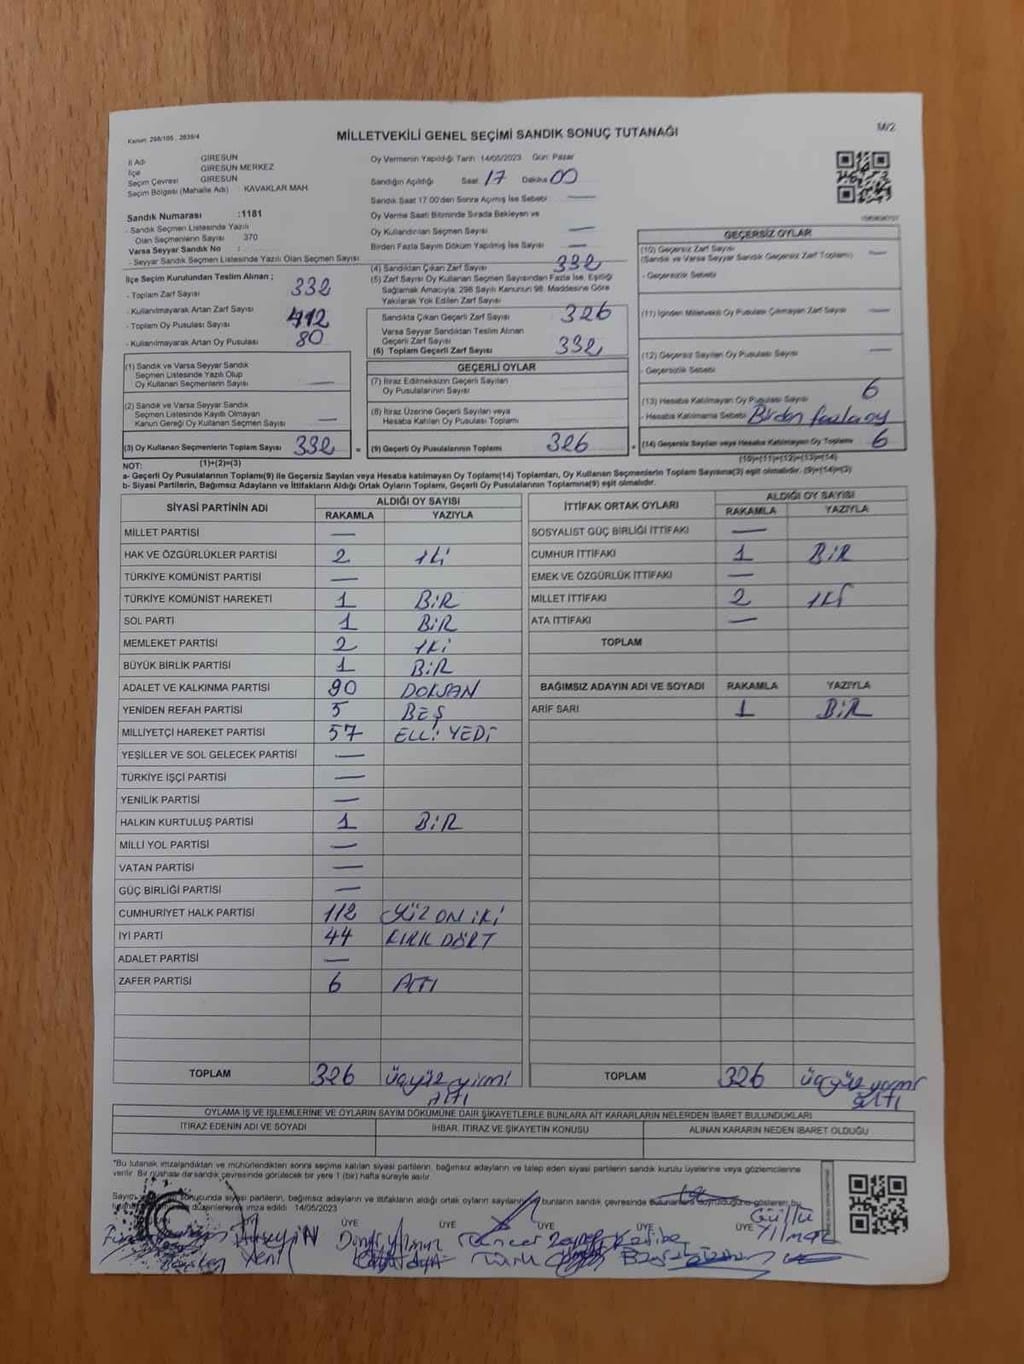 Kanun: 298/105 , 2839/4
MİLLETVEKİLİ GENEL SEÇİMİ SANDIK SONUÇ TUTANAĞI
M/2
İl Adı GİRESUN
İlçe GİRESUN MERKEZ
Seçim Çevresi GİRESUN
Seçim Bölgesi (Mahalle Adı) KAVAKLAR MAH.
Oy Vermenin Yapıldığı Tarih 14/05/2023 Gün: Pazar
Sandığın Açıldığı Saat 17 Dakika 00
Sandık Saat 17:00'den Sonra Açılmış İse Sebebi —
Oy Verme Saati Bitiminde Sırada Bekleyen ve
Oy Kullandırılan Seçmen Sayısı —
Birden Fazla Sayım Döküm Yapılmış İse Sayısı —
Sandık Numarası :1181
- Sandık Seçmen Listesinde Yazılı
Olan Seçmenlerin Sayısı 370
Varsa Seyyar Sandık No :
- Seyyar Sandık Seçmen Listesinde Yazılı Olan Seçmen Sayısı
İlçe Seçim Kurulundan Teslim Alınan ;
- Toplam Zarf Sayısı 332
- Kullanılmayarak Artan Zarf Sayısı
- Toplam Oy Pusulası Sayısı 412
- Kullanılmayarak Artan Oy Pusulası 80
(1) Sandık ve Varsa Seyyar Sandık
Seçmen Listesinde Yazılı Olup
Oy Kullanan Seçmenlerin Sayısı —
(2) Sandık ve Varsa Seyyar Sandık
Seçmen Listesinde Kayıtlı Olmayan
Kanun Gereği Oy Kullanan Seçmen Sayısı —
(3) Oy Kullanan Seçmenlerin Toplam Sayısı 332 =
(1)+(2)=(3)
(4) Sandıktan Çıkan Zarf Sayısı 332
(5) Zarf Sayısı Oy Kullanan Seçmen Sayısından Fazla İse, Eşitliği
Sağlamak Amacıyla, 298 Sayılı Kanunun 98. Maddesine Göre
Yakılarak Yok Edilen Zarf Sayısı
Sandıkta Çıkan Geçerli Zarf Sayısı 326
Varsa Seyyar Sandıktan Teslim Alınan
Geçerli Zarf Sayısı
(6) Toplam Geçerli Zarf Sayısı 332
GEÇERLİ OYLAR
(7) İtiraz Edilmeksizin Geçerli Sayılan
Oy Pusulalarının Sayısı
(8) İtiraz Üzerine Geçerli Sayılan veya
Hesaba Katılan Oy Pusulası Toplamı
(9) Geçerli Oy Pusulalarının Toplamı 326 +
GEÇERSİZ OYLAR
(10) Geçersiz Zarf Sayısı
(Sandık ve Varsa Seyyar Sandık Geçersiz Zarf Toplamı) —
- Geçersizlik Sebebi
(11) İçinden Milletvekili Oy Pusulası Çıkmayan Zarf Sayısı —
(12) Geçersiz Sayılan Oy Pusulası Sayısı —
- Geçersizlik Sebebi
(13) Hesaba Katılmayan Oy Pusulası Sayısı 6
- Hesaba Katılmama Sebebi Birden fazla oy
(14) Geçersiz Sayılan veya Hesaba Katılmayan Oy Toplamı 6
(10)+(11)+(12)+(13)=(14)
NOT:
a- Geçerli Oy Pusulalarının Toplamı(9) ile Geçersiz Sayılan veya Hesaba katılmayan Oy Toplamı(14) Toplamları, Oy Kullanan Seçmenlerin Toplam Sayısına(3) eşit olmalıdır. (9)+(14)=(3)
b- Siyasi Partilerin, Bağımsız Adayların ve İttifakların Aldığı Ortak Oyların Toplamı, Geçerli Oy Pusulalarının Toplamına(9) eşit olmalıdır.
SİYASİ PARTİNİN ADI ALDIĞI OY SAYISI
RAKAMLA YAZIYLA
MİLLET PARTİSİ —
HAK VE ÖZGÜRLÜKLER PARTİSİ 2 İKİ
TÜRKİYE KOMÜNİST PARTİSİ —
TÜRKİYE KOMÜNİST HAREKETİ 1 BİR
SOL PARTİ 1 BİR
MEMLEKET PARTİSİ 2 İKİ
BÜYÜK BİRLİK PARTİSİ 1 BİR
ADALET VE KALKINMA PARTİSİ 90 DOKSAN
YENİDEN REFAH PARTİSİ 5 BEŞ
MİLLİYETÇİ HAREKET PARTİSİ 57 ELLİ YEDİ
YEŞİLLER VE SOL GELECEK PARTİSİ —
TÜRKİYE İŞÇİ PARTİSİ —
YENİLİK PARTİSİ —
HALKIN KURTULUŞ PARTİSİ 1 BİR
MİLLİ YOL PARTİSİ —
VATAN PARTİSİ —
GÜÇ BİRLİĞİ PARTİSİ —
CUMHURİYET HALK PARTİSİ 112 YÜZ ON İKİ
İYİ PARTİ 44 KIRK DÖRT
ADALET PARTİSİ —
ZAFER PARTİSİ 6 ALTI
TOPLAM 326 üçyüz yirmi
altı
İTTİFAK ORTAK OYLARI ALDIĞI OY SAYISI
RAKAMLA YAZIYLA
SOSYALİST GÜÇ BİRLİĞİ İTTİFAKI —
CUMHUR İTTİFAKI 1 BİR
EMEK VE ÖZGÜRLÜK İTTİFAKI —
MİLLET İTTİFAKI 2 İKİ
ATA İTTİFAKI —
TOPLAM
BAĞIMSIZ ADAYIN ADI VE SOYADI RAKAMLA YAZIYLA
ARİF SARI 1 BİR
TOPLAM 326 üçyüz yirmi
altı
OYLAMA İŞ VE İŞLEMLERİNE VE OYLARIN SAYIM DÖKÜMÜNE DAİR ŞİKAYETLERLE BUNLARA AİT KARARLARIN NELERDEN İBARET BULUNDUKLARI
İTİRAZ EDENİN ADI VE SOYADI İHBAR, İTİRAZ VE ŞİKAYETİN KONUSU ALINAN KARARIN NEDEN İBARET OLDUĞU
"Bu tutanak imzalandıktan ve mühürlendikten sonra seçime katılan siyasi partilerin, bağımsız adayların ve talep eden siyasi partilerin sandık kurulu üyelerine veya gözlemcilerine
verilir. Bir nüshası da sandık çevresinde görülecek bir yere 1 (bir) hafta süreyle asılır.
Sayım sonucunda siyasi partilerin, bağımsız adayların ve ittifakların aldığı ortak oyların sayılarını bunların sandık çevresinde
düzenlenerek imza edildi. 14/05/2023
ÜYE ÜYE ÜYE ÜYE ÜYE
Hüseyin
Yeni
Yılmaz
Tuncer
Türk
Zeynep
Gülşü
Yılmaz